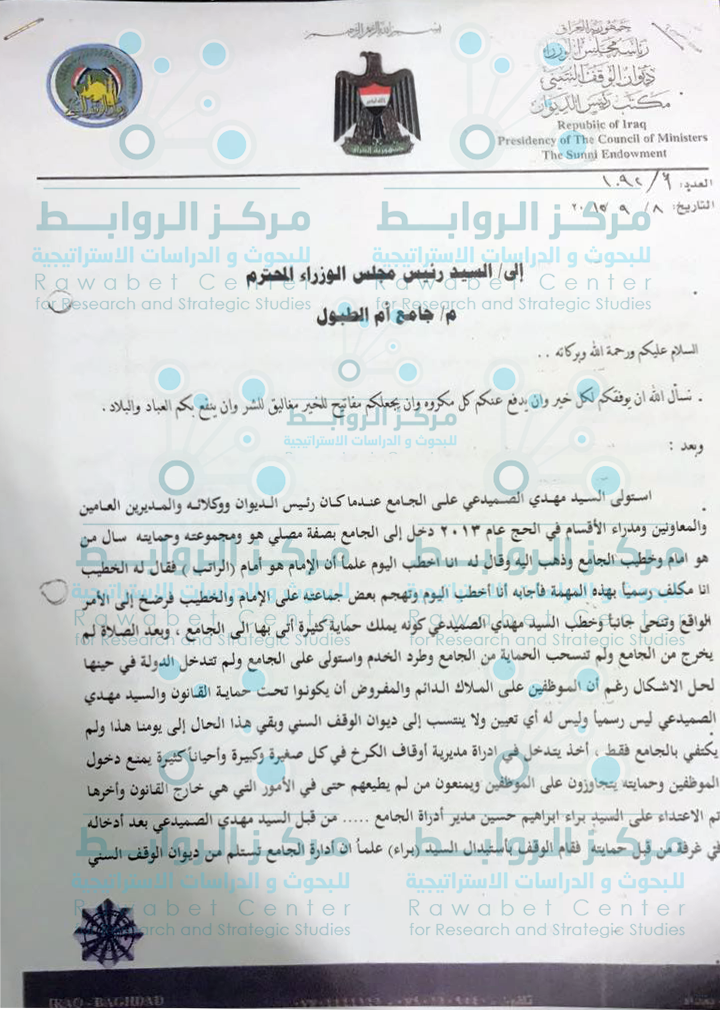 بسم الله الرحمن الرحيم
جمهورية العراق
رئاسة مجلس الوزراء
ديوان الوقف السني
مكتب رئيس الديوان
Republic of Iraq
Presidency of The Council of Ministers
The Sunni Endowment
العدد: ١٠٩٢/٦
التاريخ: ٨ / ٩ / ٢٠١٥
مركز الروابط
للبحوث و الدراسات الاستراتيجية
Rawabet Center
for Research and Strategic Studies
إلى/ السيد رئيس مجلس الوزراء المحترم
م/ جامع أم الطبول
السلام عليكم ورحمة الله وبركاته . .
. نسأل الله ان يوفقكم لكل خير وان يدفع عنكم كل مكروه وان يجعلكم مفاتيح للخير مغاليق للشر وان ينفع بكم العباد والبلاد .
وبعد :
استولى السيد مهدي الصميدعي على الجامع عندما كان رئيس الديوان ووكلائه والمديرين العامين
والمعاونين ومدراء الأقسام في الحج عام ٢٠١٣ دخل إلى الجامع بصفة مصلي هو ومجموعته وحمايته سال من
هو امام وخطيب الجامع وذهب إليه وقال له انا اخطب اليوم علماً أن الإمام هو أمام (الراتب ) فقال له الخطيب
انا مكلف رسمياً بهذه المهمة فأجابه أنا اخطب اليوم وتهجم بعض جماعته على الإمام والخطيب فرضخ إلى الأمر
الواقع وتنحى جانباً وخطب السيد مهدي الصميدعي كونه يملك حماية كثيرة أتى بها الى الجامع ، وبعد الصلاة لم
يخرج من الجامع ولم تنسحب الحماية من الجامع وطرد الخدم واستولى على الجامع ولم تتدخل الدولة في حينها
لحل الاشكال رغم أن الموظفين على الملاك الدائم والمفروض أن يكونوا تحت حماية القانون والسيد مهدي
الصميدعي ليس رسمياً وليس له أي تعيين ولا ينتسب إلى ديوان الوقف السني وبقي هذا الحال إلى يومنا هذا ولم
يكتفي بالجامع فقط ، أخذ يتدخل في ادراة مديرية أوقاف الكرخ في كل صغيرة وكبيرة وأحياناً كثيرة يمنع دخول
الموظفين وحمايته يتجاوزون على الموظفين ويمنعون من لم يطيعهم حتى في الأمور التي هي خارج القانون وأخرها
تم الاعتداء على السيد براء ابراهيم حسين مدير أدراة الجامع ..... من قبل السيد مهدي الصميدعي بعد أدخاله
في غرفة من قبل حمايته فقام الوقف بأستبدال السيد (براء) علماً ان أدارة الجامع تستلم من ديوان الوقف السني
IRAQ - BAGHDAD